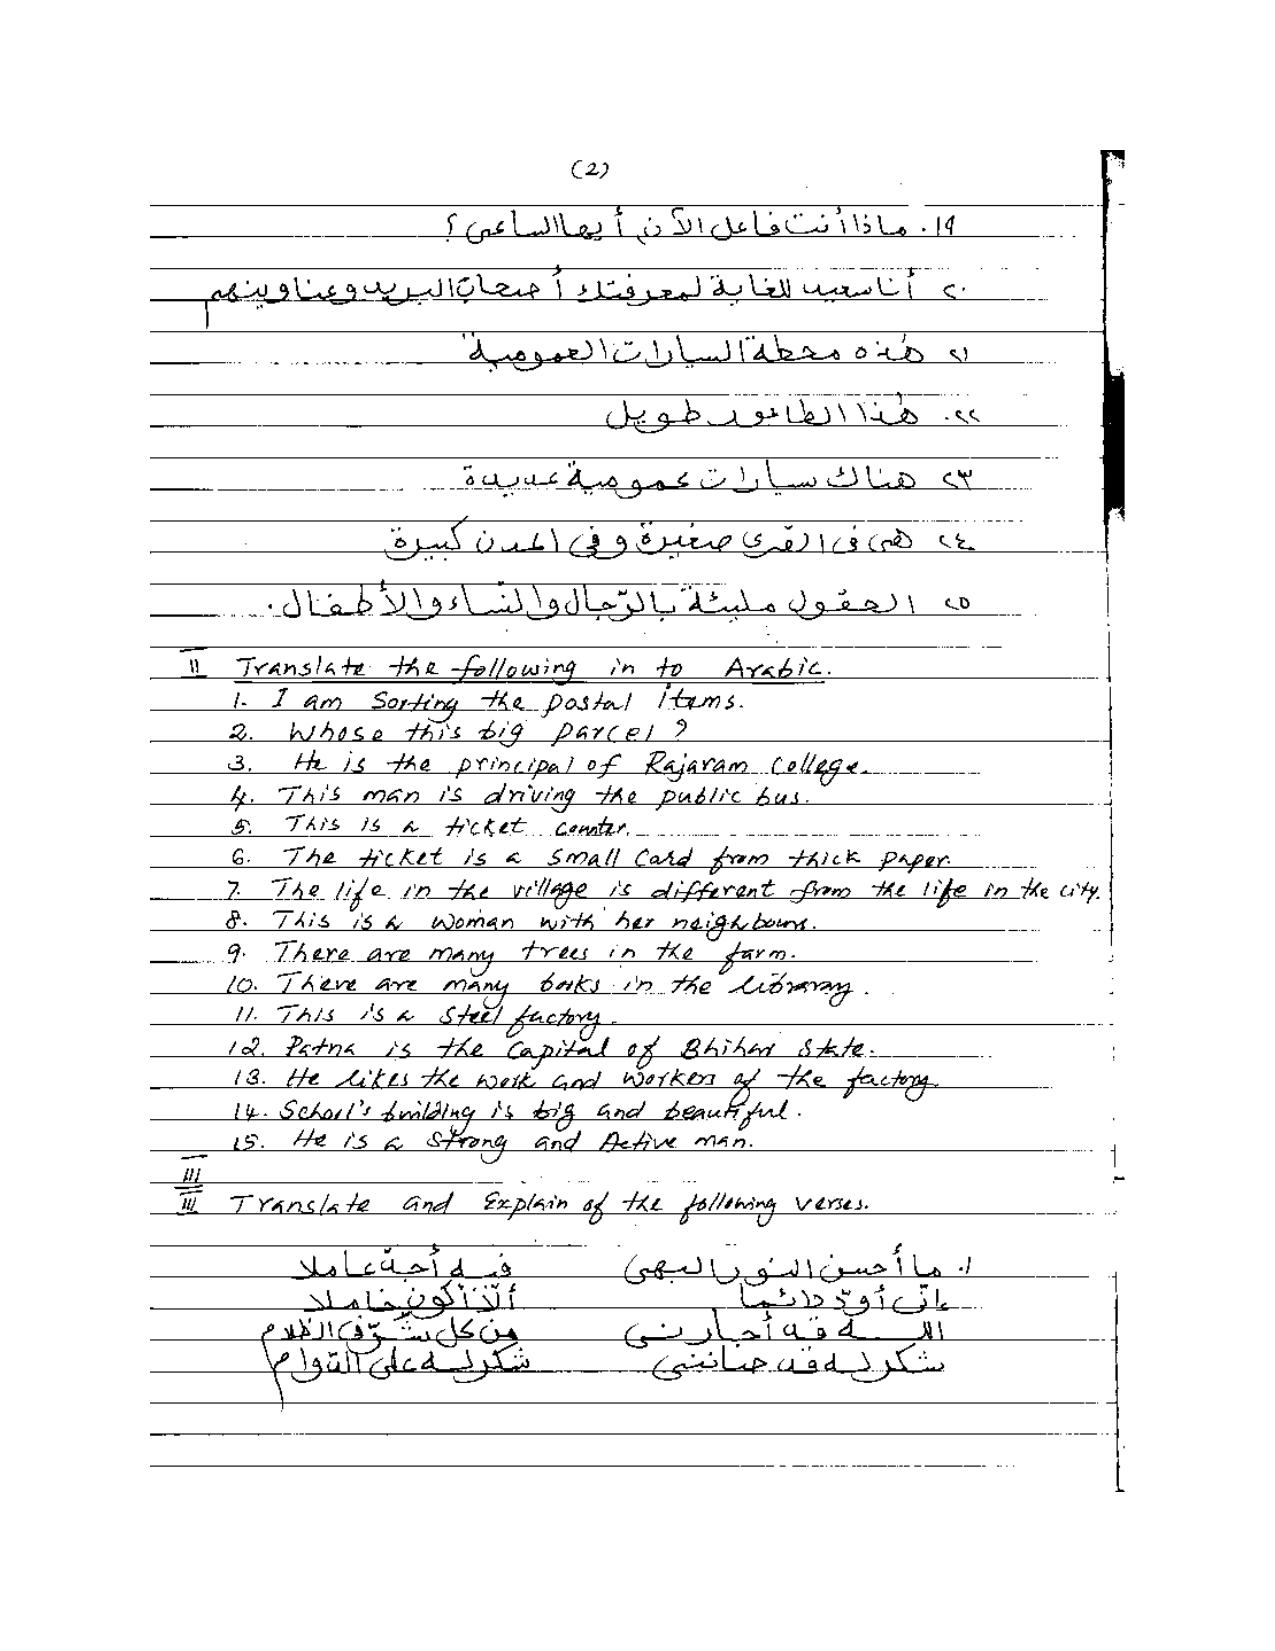 (2)
١٩. ماذا أنت فاعل الآن أيها الساعى؟
٢٠ أنا سعيد للغاية لمعرفتك أصحاب البريد وعناوينهم
٢١ هذه محطة السيارات العمومية
٢٢. هذا الطابور طويل
٢٣ هناك سيارات عمومية عديدة
٢٤ هى فى القرى صغيرة وفى المدن كبيرة
٢٥ الحقول مليئة بالرّجال والنّساء والأطفال.
II Translate the following in to Arabic.
1. I am Sorting the postal items.
2. Whose this big parcel?
3. He is the principal of Rajaram College.
4. This man is driving the public bus.
5. This is a ticket counter.
6. The ticket is a small card from thick paper.
7. The life in the village is different from the life in the city.
8. This is a woman with her neighbours.
9. There are many trees in the farm.
10. There are many books in the libraray.
11. This is a Steel factory.
12. Patna is the Capital of Bhihar State.
13. He likes the work and workers of the factory.
14. School's building is big and beautiful.
15. He is a strong and Active man.
III
III Translate and Explain of the following verses.
١. ما أحسن النور البهى فيه أحبّ عاملا
إنّى أودّ دائما ألّا أكون خاملا
اللـه قد أجارنى من كل شرّ فى الظلام
شكر له قد شكر له على الدّوام